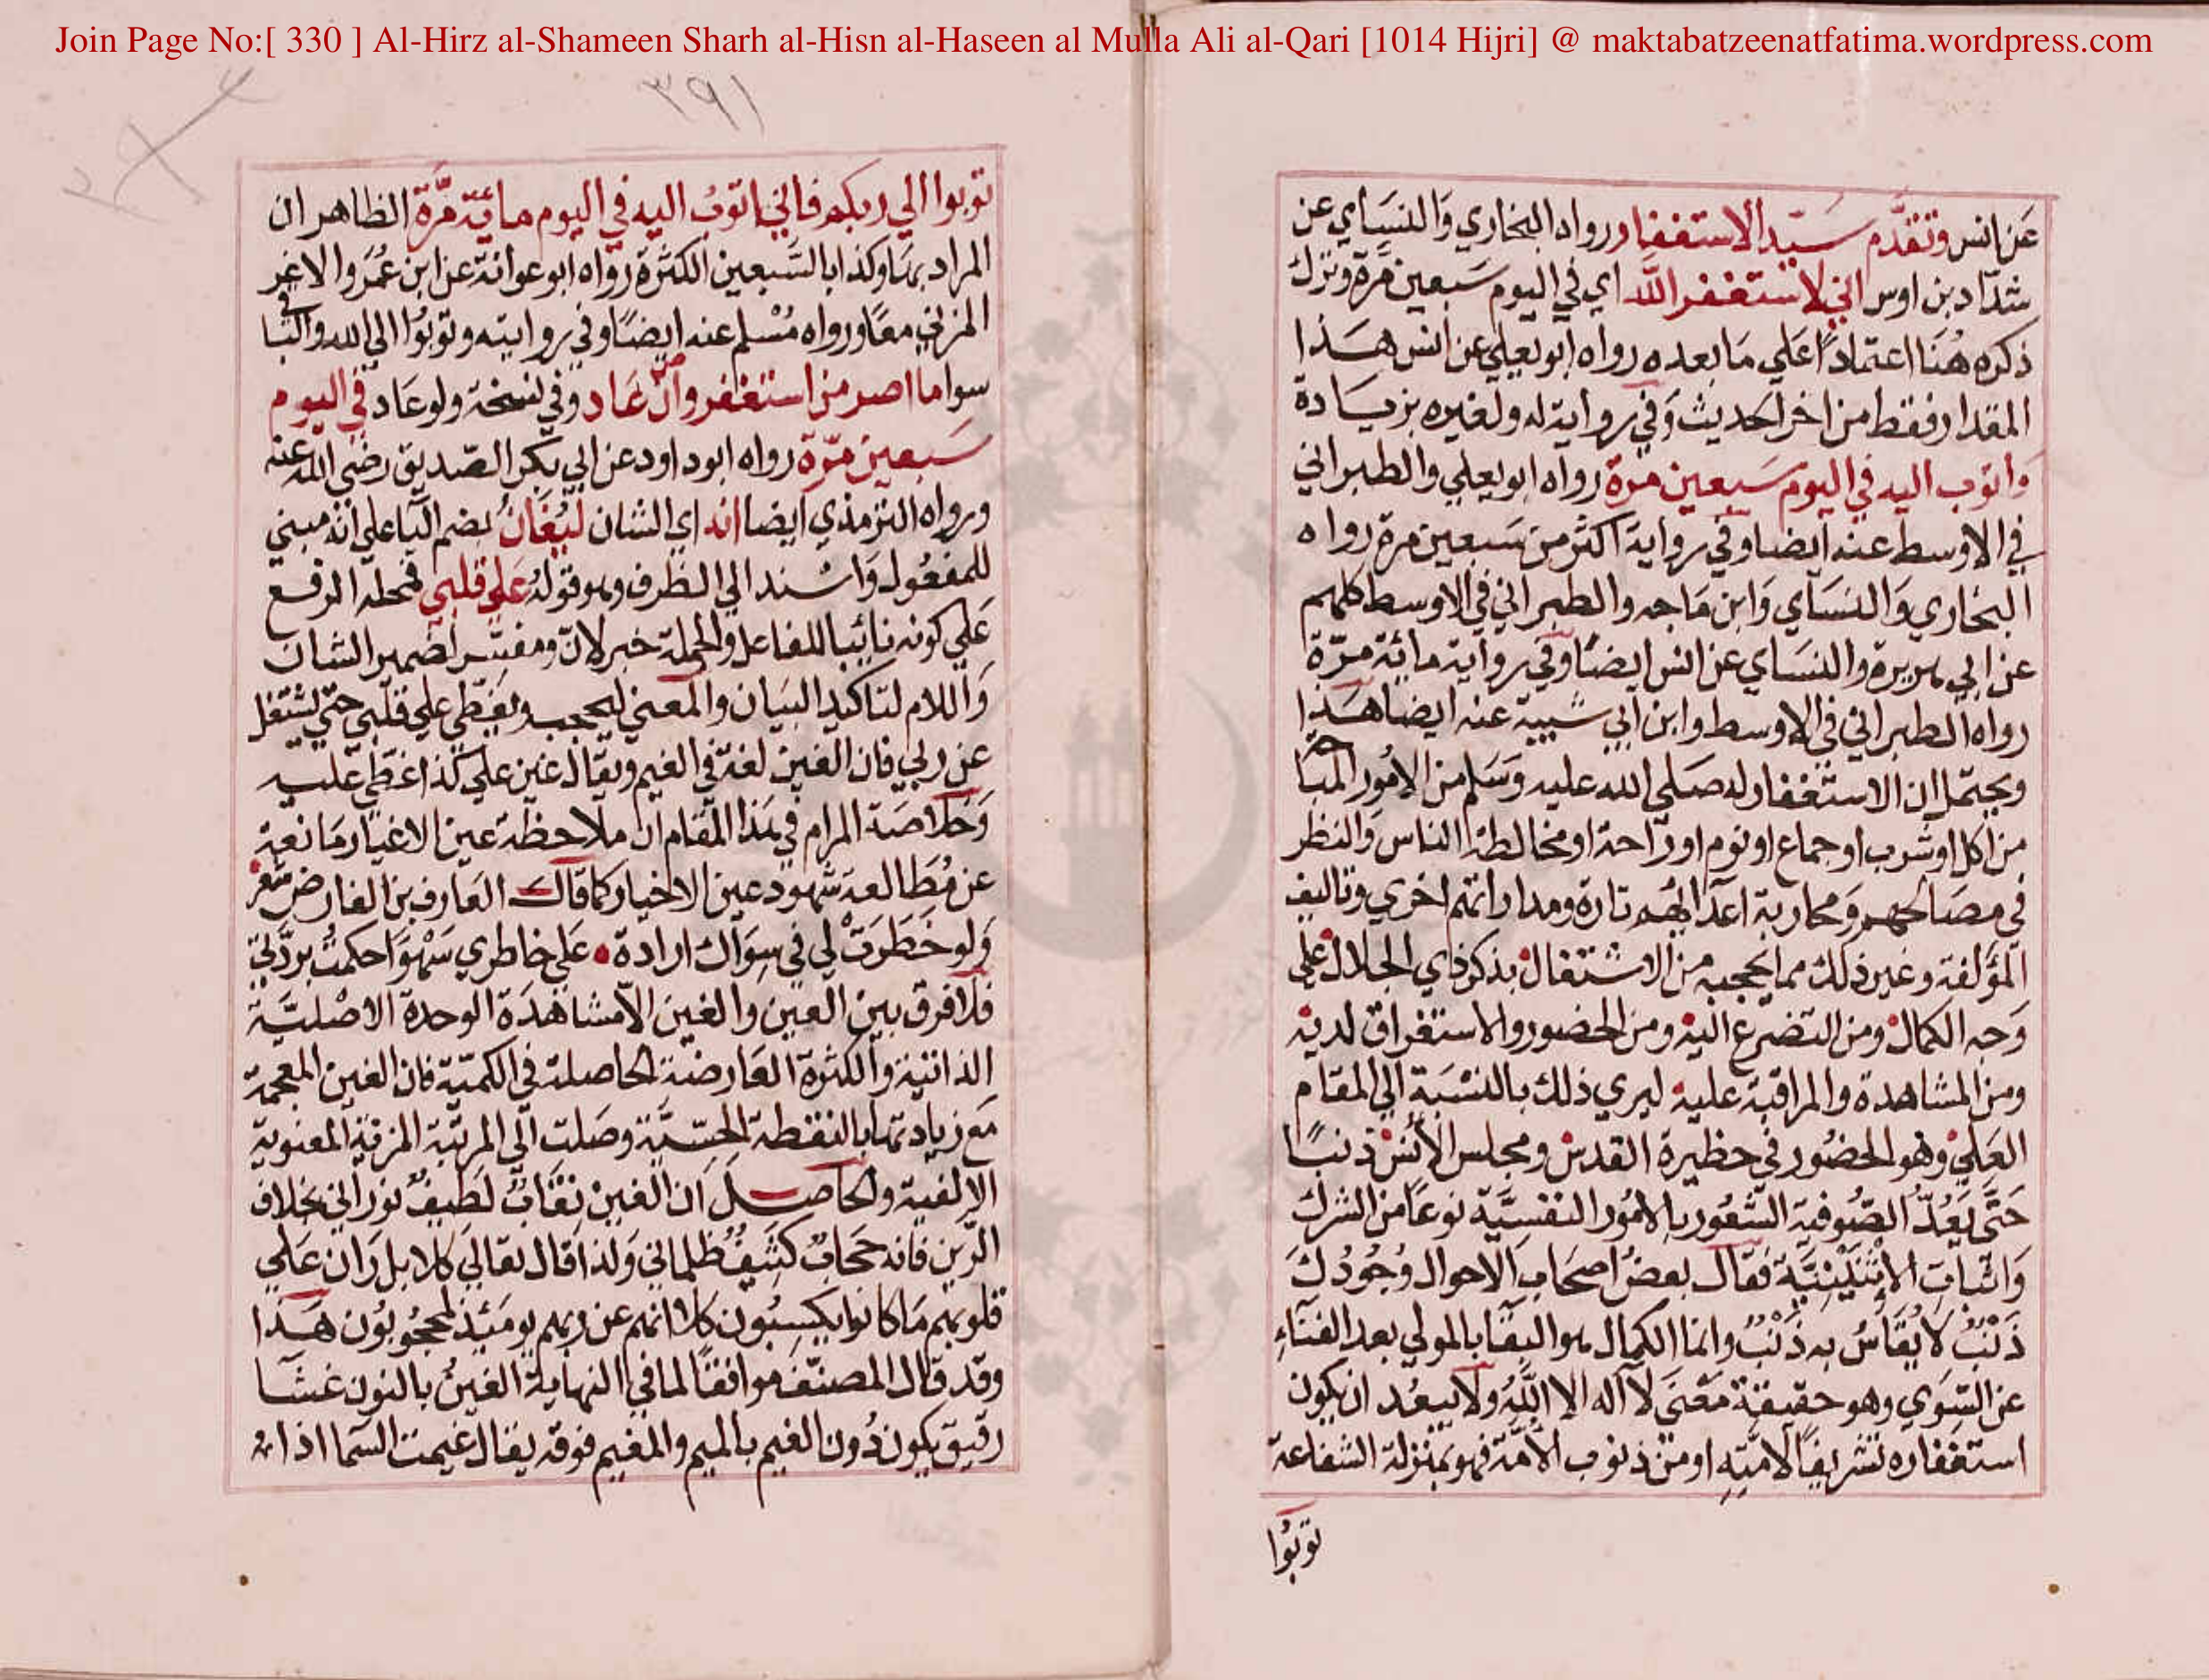 Join Page No:[ 330 ] Al-Hirz al-Shameen Sharh al-Hisn al-Haseen al Mulla Ali al-Qari [1014 Hijri] @ maktabatzeenatfatima.wordpress.com
عن انس وتقدم سيد الاستغفار رواه البخاري والنساي عن
شداد بن اوس اني لاستغفر الله اي في اليوم سبعين مرة وترك
ذكره هنا اعتمادا علي ما بعده رواه ابو يعلي عن انس هذا
المقدار فقط من اخر الحديث وفي رواية له ولغيره بزيادة
واتوب اليه في اليوم سبعين مرة رواه ابو يعلي والطبراني
في الاوسط عنه ايضا وفي رواية اكثر من سبعين مرة رواه
البخاري والنساي وابن ماجه والطبراني في الاوسط كلهم
عن ابي هريرة والنساي عن انس ايضا وفي رواية مائة مرة
رواه الطبراني في الاوسط وابن ابي شيبة عنه ايضا هذا
ويحتمل ان الاستغفار له صلي الله عليه وسلم من الامور المباحة
من اكل او شرب او جماع او نوم او راحة او مخالطة الناس والنظر
في مصالحهم ومحاربة اعدائهم تارة ومداراتهم اخري وتاليف
المؤلفة وغير ذلك مما يحجبه من الاشتغال بذكر ذي الجلال علي
وجه الكمال ومن التضرع اليه ومن الحضور والاستغراق لديه
ومن المشاهدة والمراقبة عليه ليري ذلك بالنسبة الي المقام
العلي وهو الحضور في حظيرة القدس ومجلس الانس ذنبا
حتي يعد الصوفية الشعور بالامور النفسية نوعا من الشرك
واثبات الاثنينية فقال بعض اصحاب الاحوال وجودك
ذنب لا يقاس به ذنب وانما الكمال هو البقا بالمولي بعد الفناء
عن السوي وهو حقيقة معني لا اله الا الله ولا يبعد ان يكون
استغفاره تشريفا لامته او من ذنوب الامة فهو بمنزلة الشفاعة
توبوا
٣٩١
توبوا الي ربكم فاني اتوب اليه في اليوم مائة مرة الظاهر ان
المراد بها وكذا بالسبعين الكثرة رواه ابو عوانة عن ابن عمر والاغر
المزني معا ورواه مسلم عنه ايضا وفي روايته وتوبوا الي الله والباقي
سوا ما اصر من استغفر وان عاد وفي نسخة ولو عاد في اليوم
سبعين مرة رواه ابو داود عن ابي بكر الصديق رضي الله عنه
ورواه الترمذي ايضا انه اي الشان ليغان بضم اليا علي انه مبني
للمفعول واسند الي الظرف وهو قوله علي قلبي فمحله الرفع
علي كونه نائبا للفاعل والجملة خبر لان ومفسر لضمير الشان
واللام لتاكيد البيان والمعني ليحجب ويغطي علي قلبي حتي يشتغل
عن ربي فان الغين لغة في الغيم ويقال غين علي كذا غطي عليه
وخلاصة المرام في هذا المقام ان ملاحظة عين الاغيار مانعة
عن مطالعة شهود عين الاخيار كما قال العارف بن الفارض شعر
ولو خطرت لي في سواك ارادة • علي خاطري سهوا حكمت بردتي
فلا فرق بين العين والغين الا مشاهدة الوحدة الاصلية
الذاتية والكثرة العارضة الحاصلة في الكمية فان الغين المعجمة
مع زيادتها بالنقطة الحسية وصلت الي المرتبة المزقية المعنوية
الالفية والحاصل ان الغين نقاب لطيف نوراني بخلاف
الرين فانه حجاب كثيف ظلماني ولذا قال تعالي كلا بل ران علي
قلوبهم ما كانوا يكسبون كلا انهم عن ربهم يومئذ لمحجوبون هذا
وقد قال المصنف موافقا لما في النهاية الغين بالنون غشا
رقيق يكون دون الغيم بالميم والمغيم فوقه يقال غيمت السما اذا